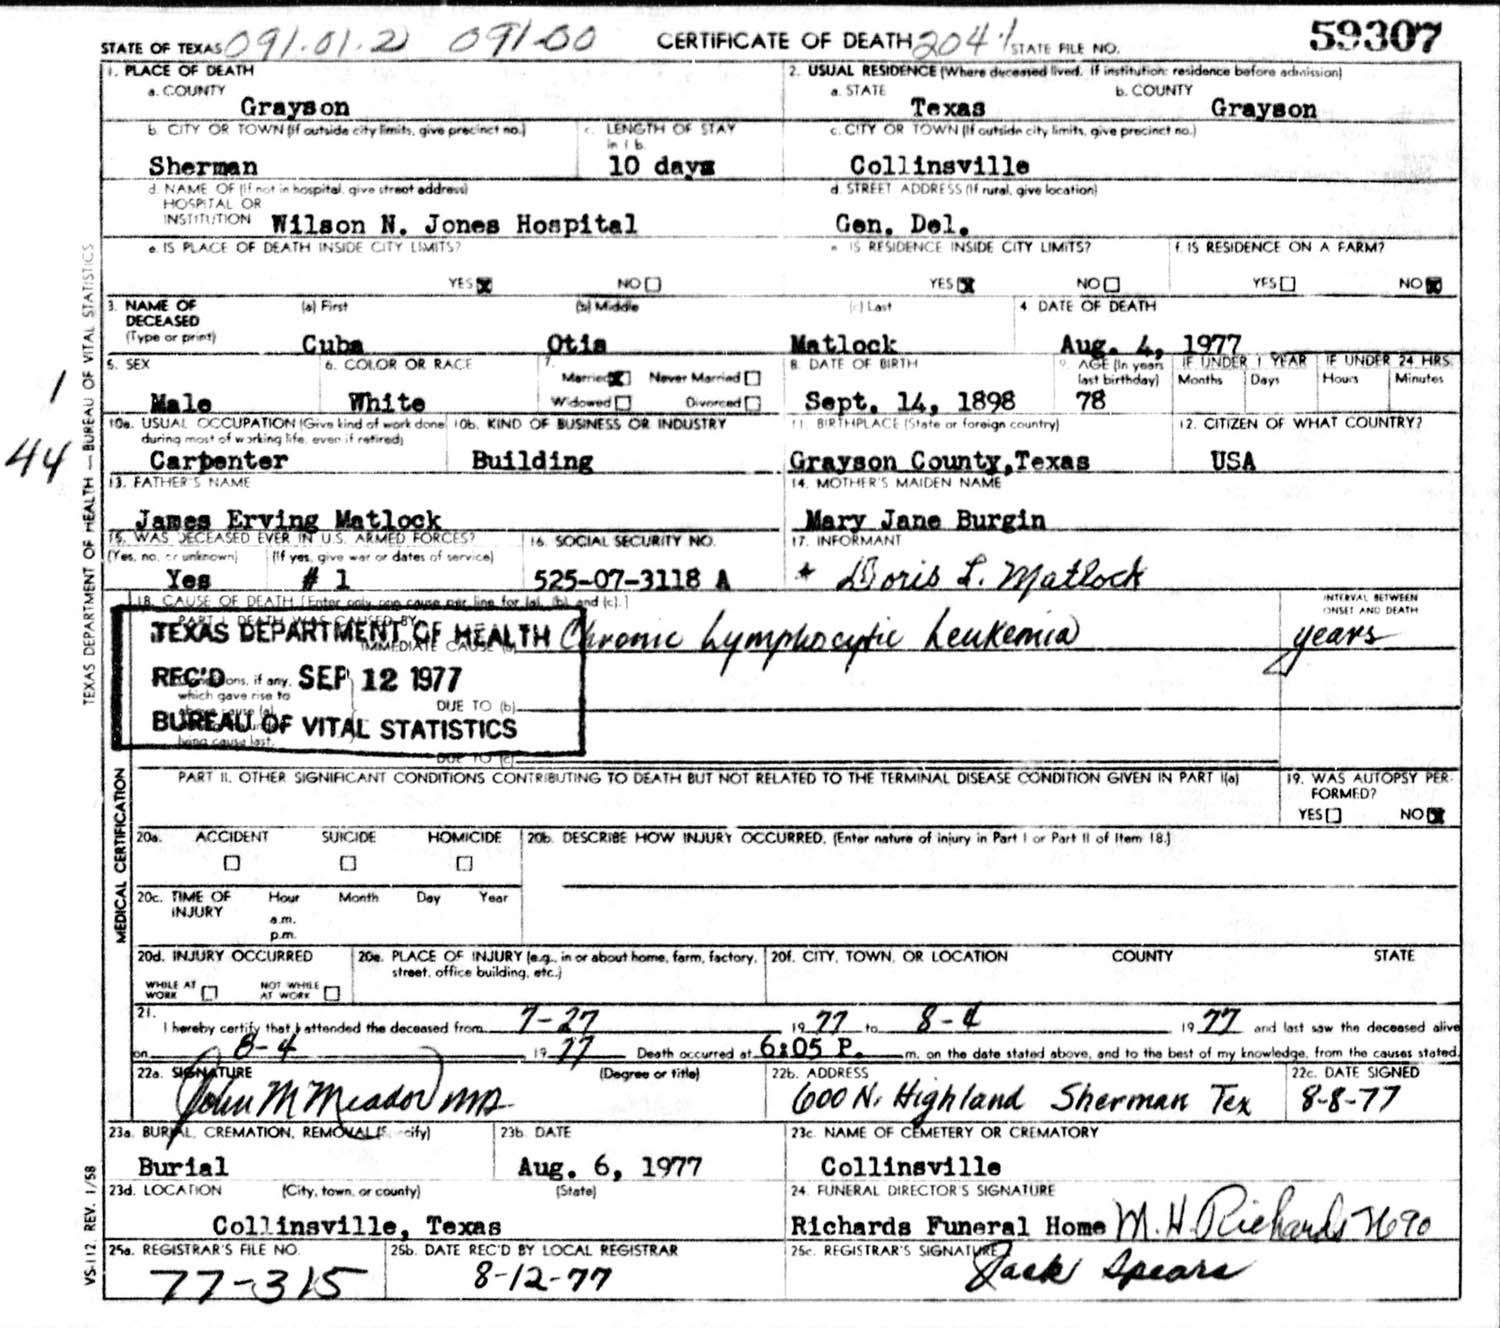 STATE OF TEXAS 091.01.2) 091-00 CERTIFICATE OF DEATH 2041 STATE FILE NO. 59307
1. PLACE OF DEATH
a. COUNTY
Grayson
2. USUAL RESIDENCE (Where deceased lived. If institution: residence before admission)
a. STATE b. COUNTY
Texas Grayson
b. CITY OR TOWN (If outside city limits, give precinct no.) c. LENGTH OF STAY in 1 b.
Sherman 10 days
c. CITY OR TOWN (If outside city limits, give precinct no.)
Collinsville
d. NAME OF (If not in hospital, give street address)
HOSPITAL OR
INSTITUTION Wilson N. Jones Hospital
d. STREET ADDRESS (If rural, give location)
Gen. Del.
e. IS PLACE OF DEATH INSIDE CITY LIMITS?
YES NO
e. IS RESIDENCE INSIDE CITY LIMITS? f. IS RESIDENCE ON A FARM?
YES NO YES NO
3. NAME OF DECEASED (Type or print)
(a) First (b) Middle (c) Last
Cuba Otis Matlock
4. DATE OF DEATH
Aug. 4, 1977
5. SEX
Male
6. COLOR OR RACE
White
7.
Married Never Married
Widowed Divorced
8. DATE OF BIRTH
Sept. 14, 1898
9. AGE (In years last birthday)
78
IF UNDER 1 YEAR IF UNDER 24 HRS.
Months Days Hours Minutes
10a. USUAL OCCUPATION (Give kind of work done during most of working life, even if retired)
Carpenter
10b. KIND OF BUSINESS OR INDUSTRY
Building
11. BIRTHPLACE (State or foreign country)
Grayson County,Texas
12. CITIZEN OF WHAT COUNTRY?
USA
13. FATHER'S NAME
James Erving Matlock
14. MOTHER'S MAIDEN NAME
Mary Jane Burgin
15. WAS DECEASED EVER IN U.S. ARMED FORCES?
(Yes, no, or unknown) (If yes, give war or dates of service)
Yes # 1
16. SOCIAL SECURITY NO.
525-07-3118 A
17. INFORMANT
* Doris L. Matlock
18. CAUSE OF DEATH [Enter only one cause per line for (a), (b), and (c).]
PART I. DEATH WAS CAUSED BY
IMMEDIATE CAUSE (a) Chronic Lymphocytic Leukemia
INTERVAL BETWEEN ONSET AND DEATH
years
TEXAS DEPARTMENT OF HEALTH
REC'D SEP 12 1977
BUREAU OF VITAL STATISTICS
if any,
which gave rise to
DUE TO (b)
lying cause last.
DUE TO (c)
PART II. OTHER SIGNIFICANT CONDITIONS CONTRIBUTING TO DEATH BUT NOT RELATED TO THE TERMINAL DISEASE CONDITION GIVEN IN PART I(a)
19. WAS AUTOPSY PERFORMED?
YES NO
20a. ACCIDENT SUICIDE HOMICIDE
20b. DESCRIBE HOW INJURY OCCURRED. (Enter nature of injury in Part I or Part II of Item 18.)
20c. TIME OF INJURY Hour Month Day Year
a.m.
p.m.
20d. INJURY OCCURRED
WHILE AT WORK NOT WHILE AT WORK
20e. PLACE OF INJURY (e.g., in or about home, farm, factory, street, office building, etc.)
20f. CITY, TOWN, OR LOCATION COUNTY STATE
21.
I hereby certify that I attended the deceased from 7-27 1977 to 8-4 1977 and last saw the deceased alive
on 8-4 1977 Death occurred at 6:05 P. m. on the date stated above, and to the best of my knowledge, from the causes stated.
22a. SIGNATURE (Degree or title)
John M Meador MD
22b. ADDRESS
600 N. Highland Sherman Tex
22c. DATE SIGNED
8-8-77
23a. BURIAL, CREMATION, REMOVAL (Specify)
Burial
23b. DATE
Aug. 6, 1977
23c. NAME OF CEMETERY OR CREMATORY
Collinsville
23d. LOCATION (City, town, or county) (State)
Collinsville, Texas
24. FUNERAL DIRECTOR'S SIGNATURE
Richards Funeral Home M. H. Richards 7690
25a. REGISTRAR'S FILE NO.
77-315
25b. DATE REC'D BY LOCAL REGISTRAR
8-12-77
25c. REGISTRAR'S SIGNATURE
Jack Spears
TEXAS DEPARTMENT OF HEALTH — BUREAU OF VITAL STATISTICS
MEDICAL CERTIFICATION
VS-112 REV. 1/58
1
44